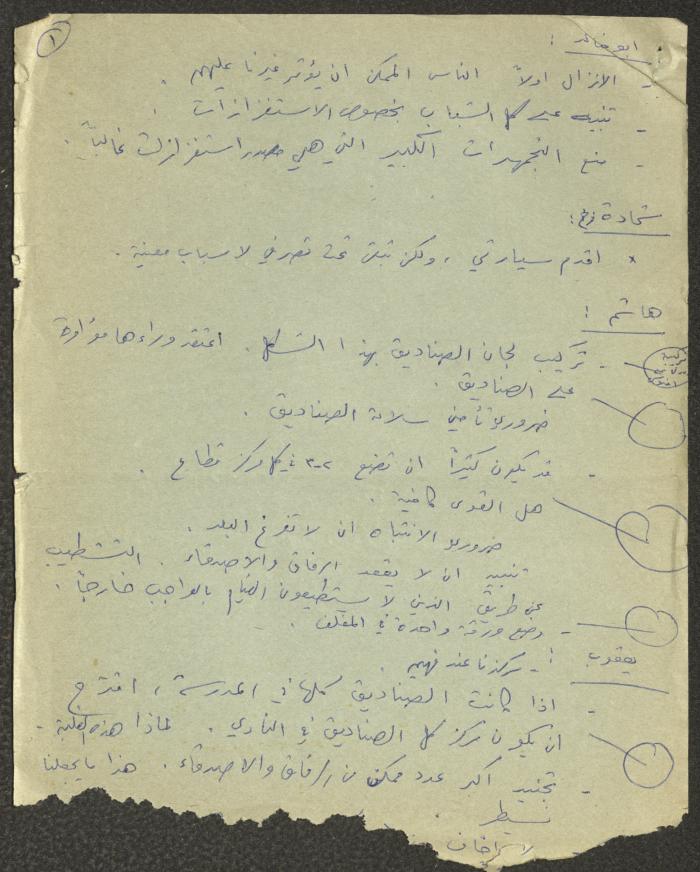 ١
ابو خالد :
- الانزال اولاً الناس الممكن ان يؤثر غيرنا عليهم .
- تنبيه على كل الشباب بخصوص الاستفزازات .
- منع التجمهرات الكبير التي هي مصدر استفزازات غالباً .
شحادة :
× اقدم سيارتي ، ولكن تبقى تحت تصرفي لاسباب معينة .
هاشم :
- تركيب لجان الصناديق بهذا الشكل . اعتقد وراءها مؤامرة
على الصناديق .
ضروري تأمين سلامة الصناديق .
- قد يكون كثيراً ان تضع ٢-٣ في كل مركز قطاع .
هل القوى كافية .
ضروري الانتباه ان لا تفرغ البلد .
تنبيه ان لا يقعد الرفاق والاصدقاء . التشطيب
عن طريق الذين لا يستطيعون القيام بالواجب خارجاً .
- وضع ورقة واحدة في المغلف .
يعقوب : - مركزنا عند فهيم .
- اذا كانت الصناديق كلها في المدرسة ، اقترح
ان يكون مركز كل الصناديق في النادي . لماذا هذه
- تجنيد اكبر عدد ممكن من الرفاق والاصدقاء . هذا ما يجعلنا
نسيطر